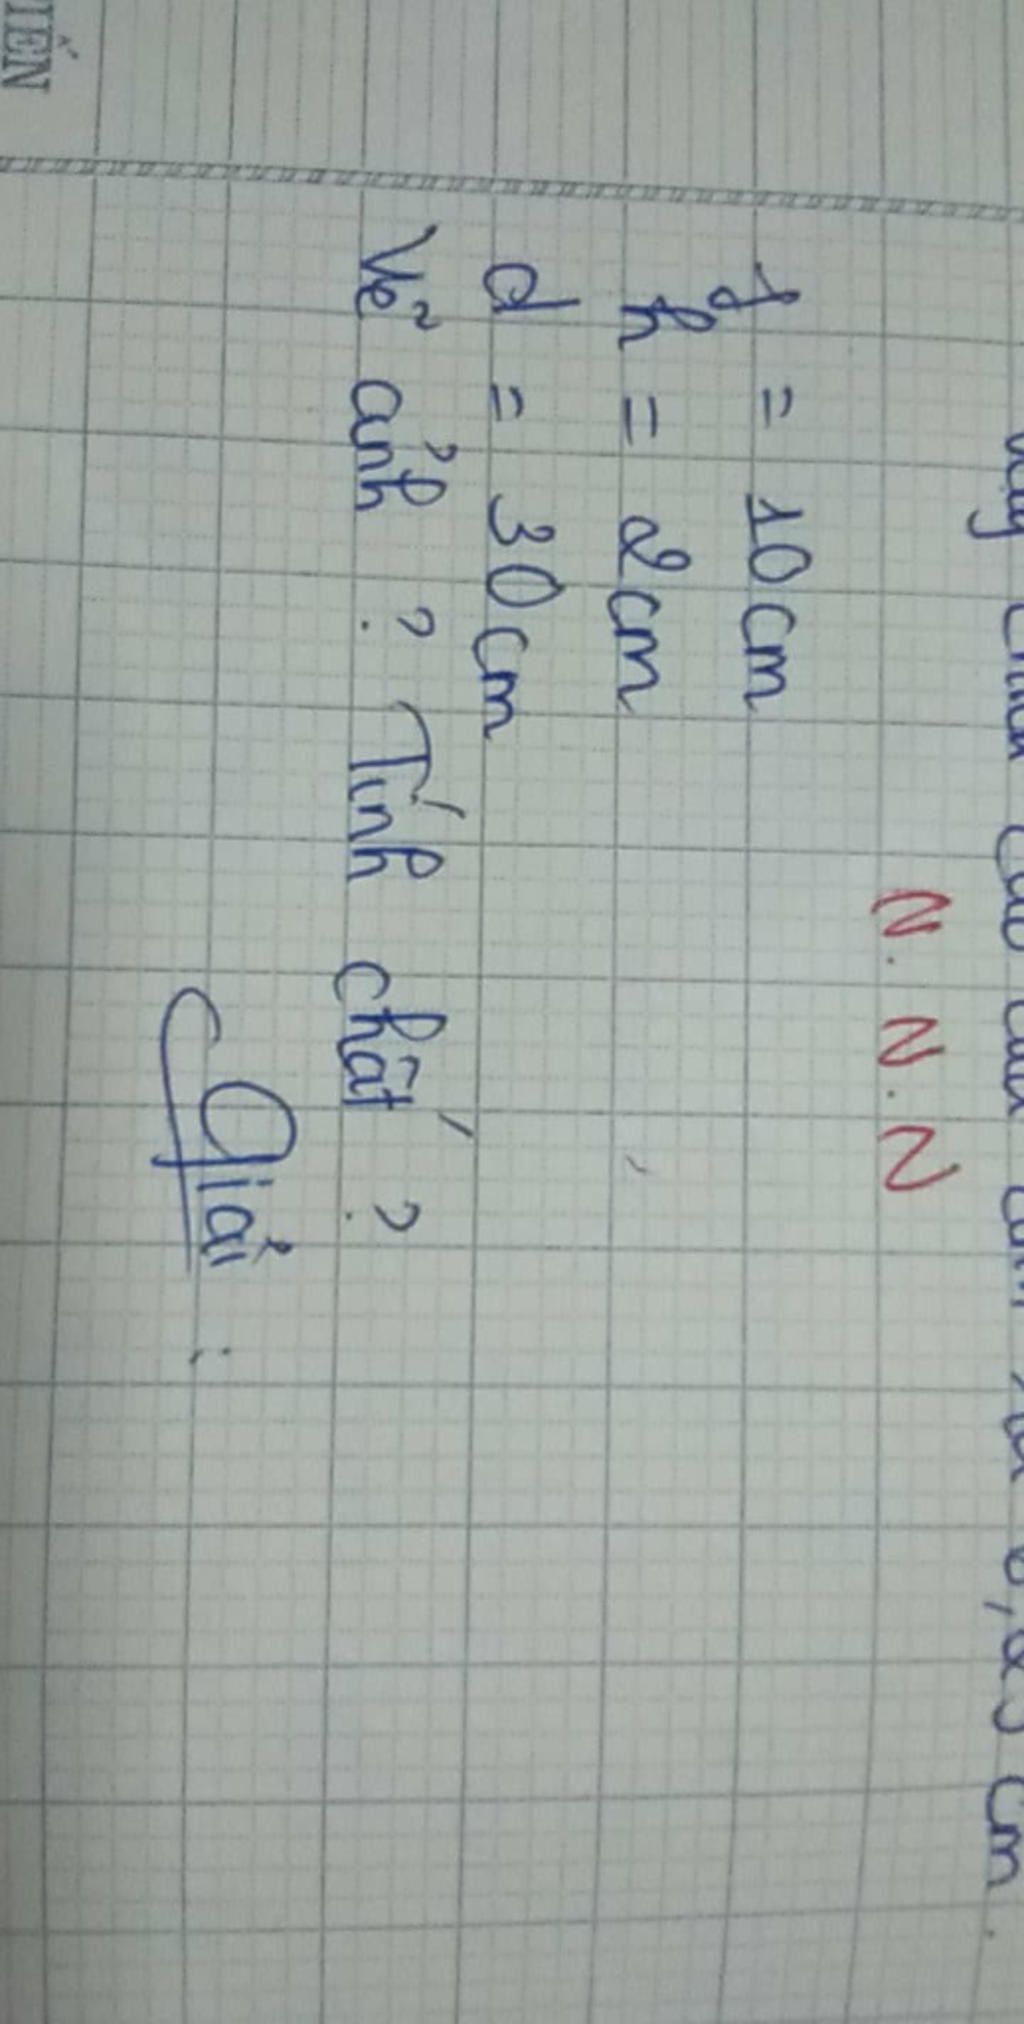 cm.
N. N. N
f = 10 cm
h = 2 cm
d = 30 cm
Vẽ ảnh ? Tính chất ?
Giải :